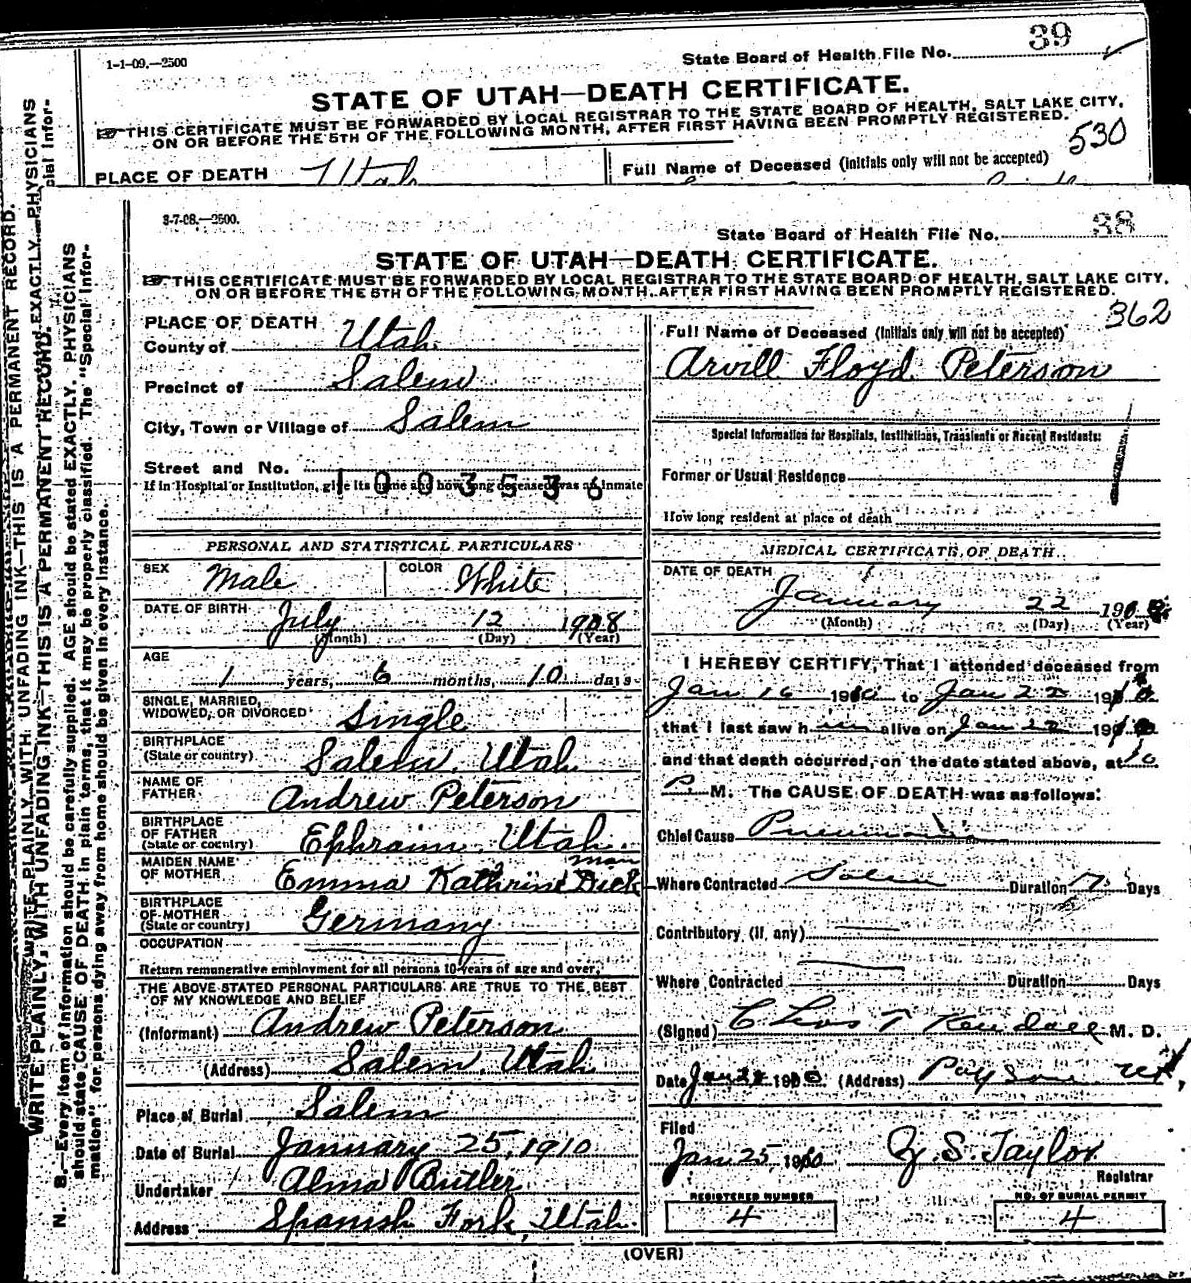 39
1-1-09.—2500
State Board of Health File No.
STATE OF UTAH—DEATH CERTIFICATE.
THIS CERTIFICATE MUST BE FORWARDED BY LOCAL REGISTRAR TO THE STATE BOARD OF HEALTH, SALT LAKE CITY,
ON OR BEFORE THE 5TH OF THE FOLLOWING MONTH, AFTER FIRST HAVING BEEN PROMPTLY REGISTERED.
530
PLACE OF DEATH Utah
Full Name of Deceased (Initials only will not be accepted)
WRITE PLAINLY WITH UNFADING INK—THIS IS A PERMANENT RECORD.
EXACTLY. PHYSICIANS
cial Infor-
WRITE PLAINLY, WITH UNFADING INK—THIS IS A PERMANENT RECORD.
N. B.—Every item of information should be carefully supplied. AGE should be stated EXACTLY. PHYSICIANS
should state CAUSE OF DEATH in plain terms, that it may be properly classified. The "Special Infor-
mation" for persons dying away from home should be given in every instance.
8-7-08.—2500.
State Board of Health File No. 38
STATE OF UTAH—DEATH CERTIFICATE.
THIS CERTIFICATE MUST BE FORWARDED BY LOCAL REGISTRAR TO THE STATE BOARD OF HEALTH, SALT LAKE CITY,
ON OR BEFORE THE 5TH OF THE FOLLOWING MONTH, AFTER FIRST HAVING BEEN PROMPTLY REGISTERED.
362
PLACE OF DEATH
County of Utah
Precinct of Salem
City, Town or Village of Salem
Street and No.
1003536
If in Hospital or Institution, give its name and how long deceased was an inmate
PERSONAL AND STATISTICAL PARTICULARS
SEX Male COLOR White
DATE OF BIRTH July 12 1908
(Month) (Day) (Year)
AGE
1 years, 6 months, 10 days
SINGLE, MARRIED,
WIDOWED, OR DIVORCED Single
BIRTHPLACE
(State or country) Salem, Utah
NAME OF
FATHER Andrew Peterson
BIRTHPLACE
OF FATHER
(State or country) Ephraim, Utah.
MAIDEN NAME
OF MOTHER Emma Kathrine Dickman
BIRTHPLACE
OF MOTHER
(State or country) Germany
OCCUPATION
Return remunerative employment for all persons 10 years of age and over.
THE ABOVE STATED PERSONAL PARTICULARS ARE TRUE TO THE BEST
OF MY KNOWLEDGE AND BELIEF
(Informant) Andrew Peterson
(Address) Salem, Utah
Place of Burial Salem
Date of Burial January 25, 1910
Undertaker Alma Butler
Address Spanish Fork, Utah.
Full Name of Deceased (Initials only will not be accepted)
Arvill Floyd Peterson
Special Information for Hospitals, Institutions, Transients or Recent Residents:
Former or Usual Residence
How long resident at place of death
MEDICAL CERTIFICATE OF DEATH
DATE OF DEATH
January 22 1910
(Month) (Day) (Year)
I HEREBY CERTIFY, That I attended deceased from
Jan 16 1910 to Jan 22 1910
that I last saw him alive on Jan 22 1910
and that death occurred, on the date stated above, at 10
P. M. The CAUSE OF DEATH was as follows:
Chief Cause Pneumonia
Where Contracted Salem Duration 7 Days
Contributory (if any)
Where Contracted Duration Days
(Signed) Chas T Kendall M. D.
Date Jan 1910 (Address) Payson Ut,
Filed
Jan 25, 1910 S. Taylor
Registrar
REGISTERED NUMBER
4
NO. OF BURIAL PERMIT
4
(OVER)